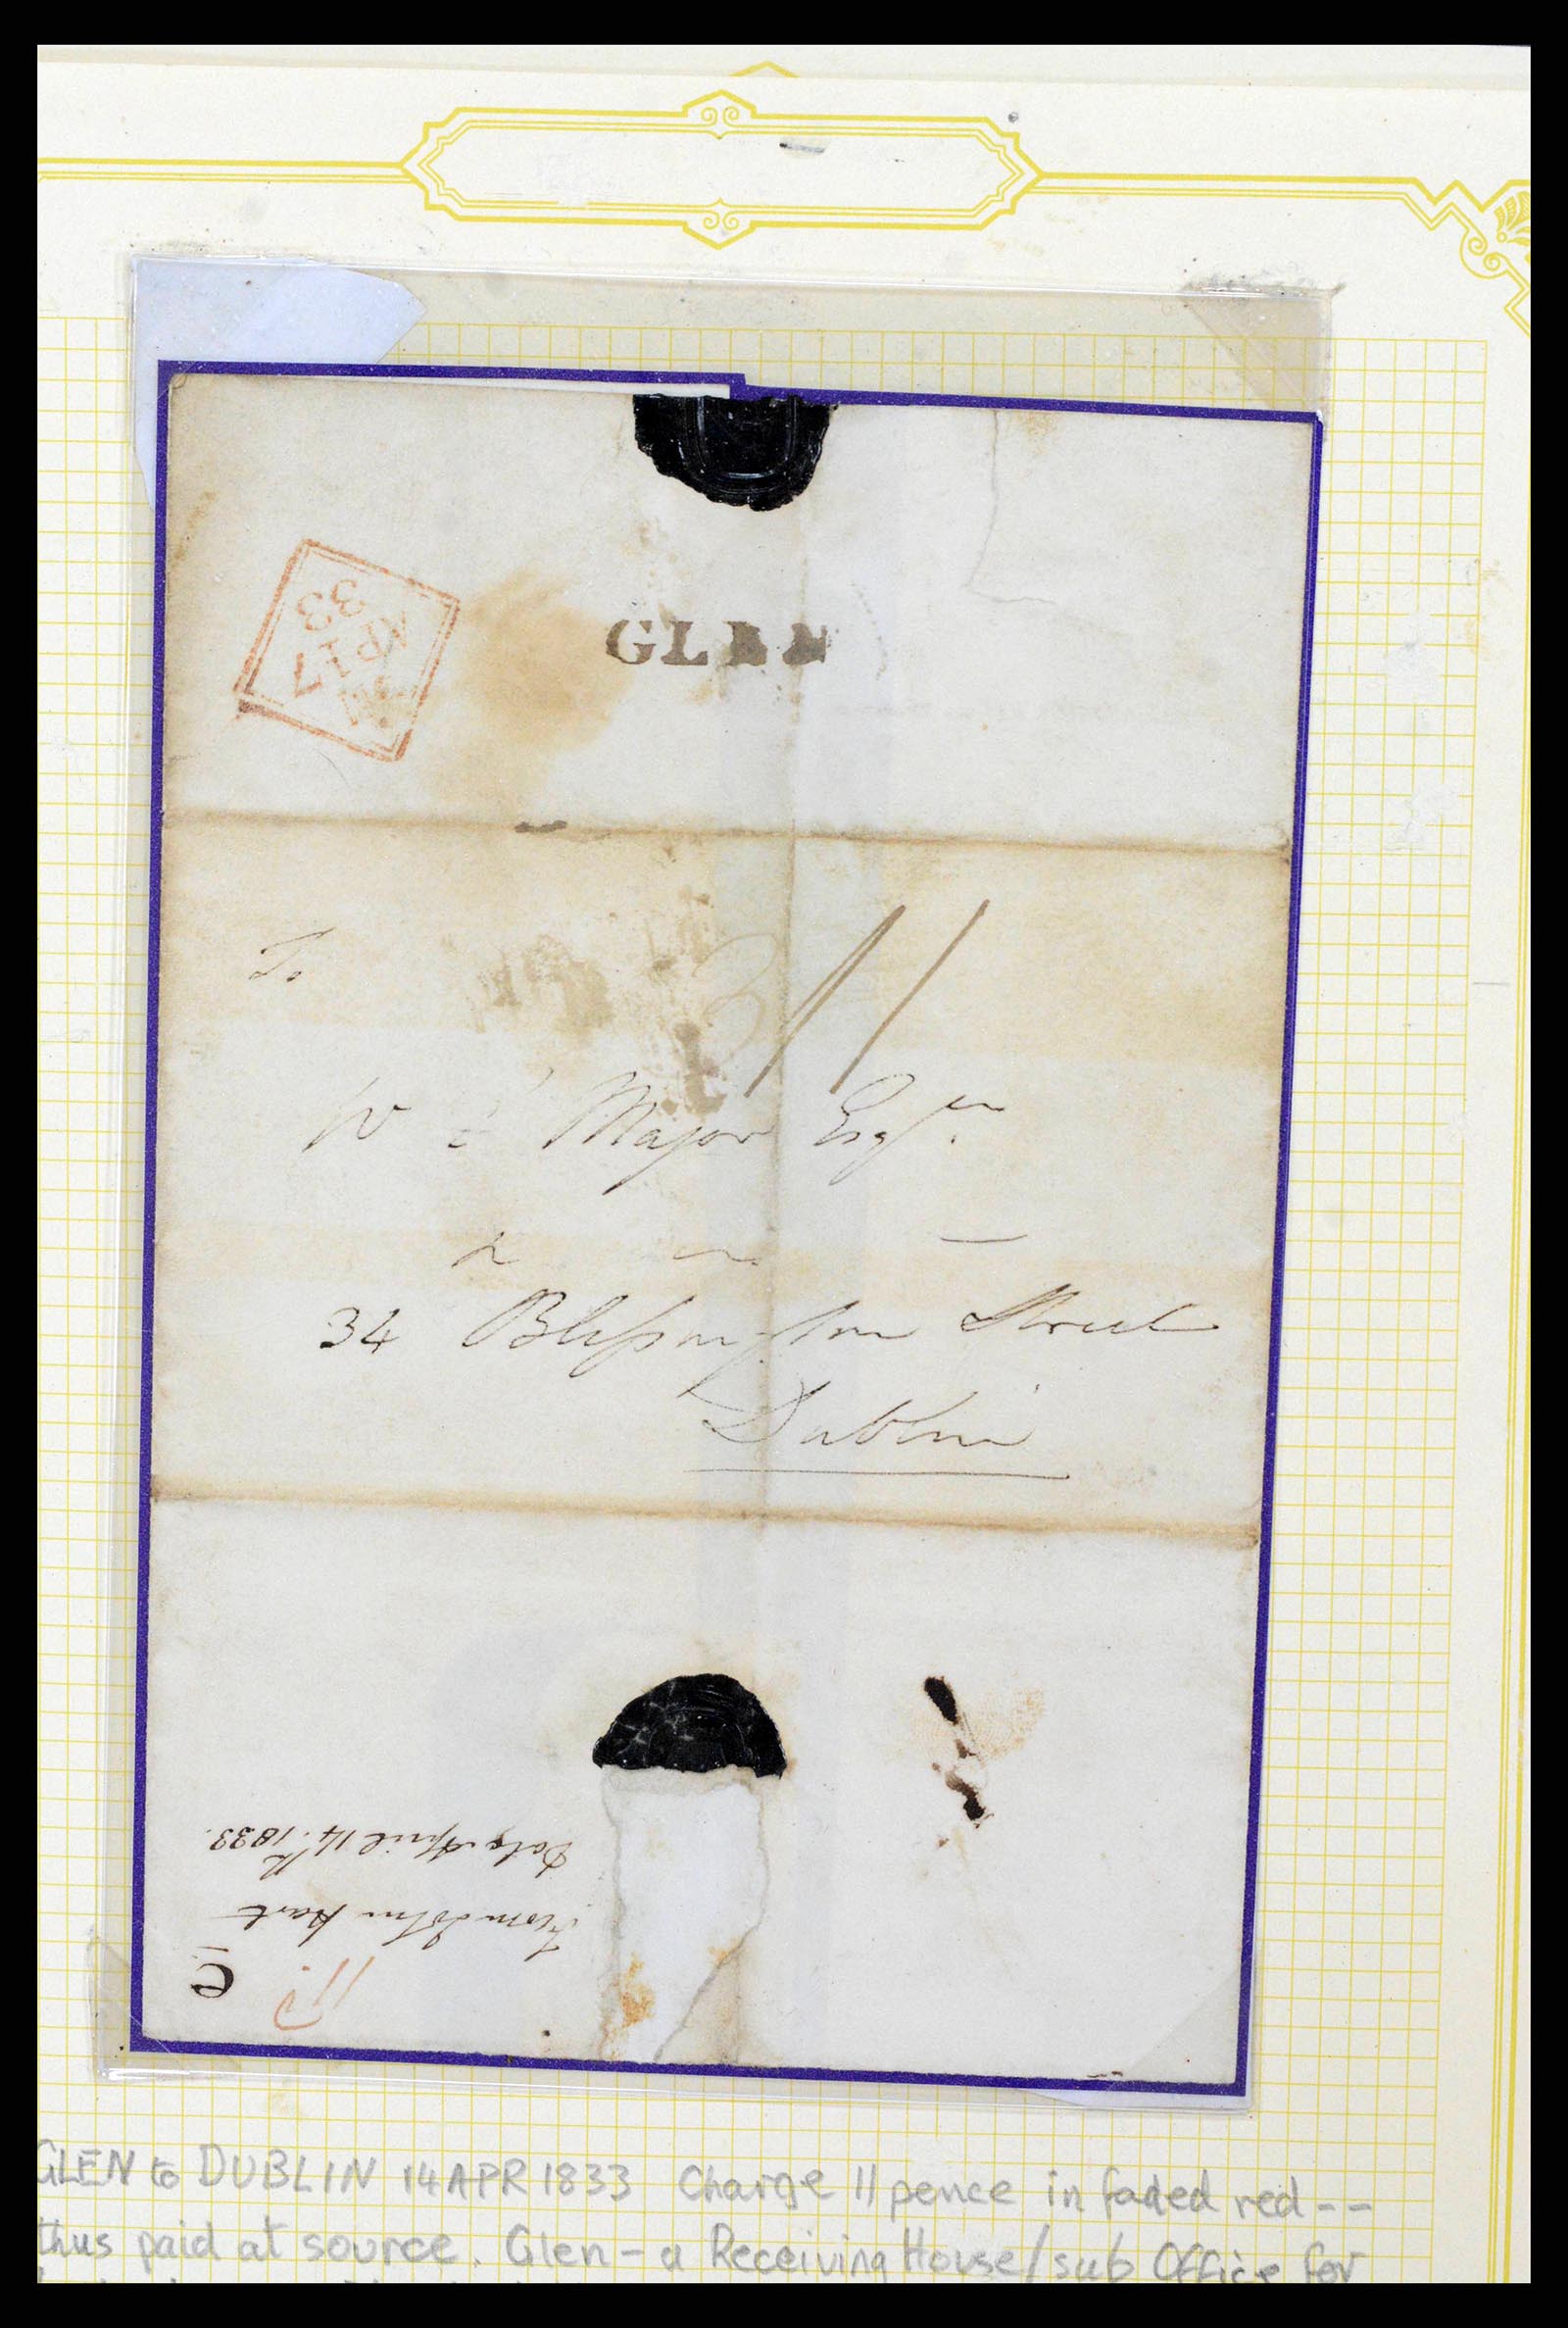 33
AP 17
GLEN
To
11
W Major Esqre
34 Blessington Street
Dublin
From John Hart
Date April 14th. 1833.
GLEN to DUBLIN 14 APR 1833 Charge 11 pence in faded red--
thus paid at source. Glen - a Receiving House/sub Office for